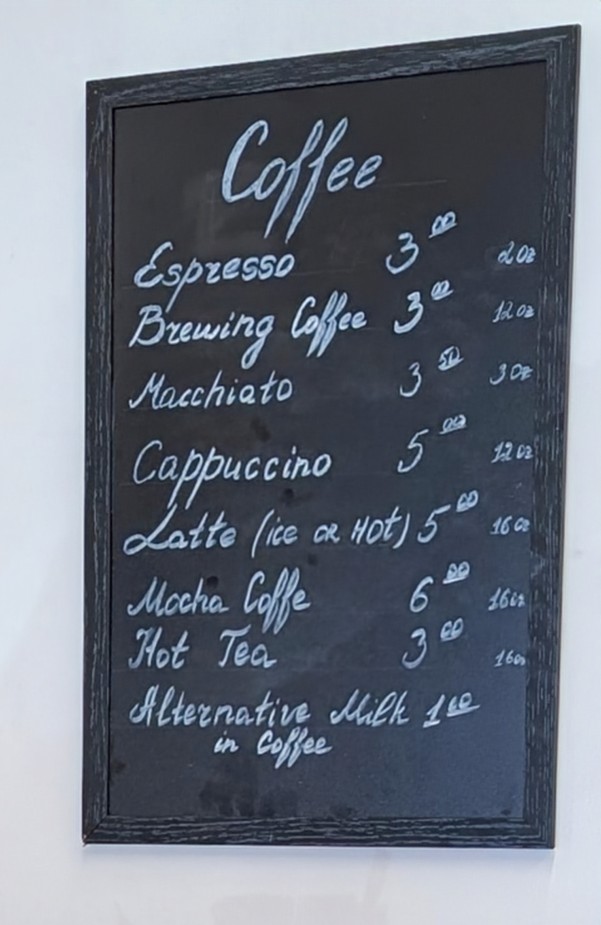 Coffee
Espresso 3 00 2 oz
Brewing Coffee 3 00 12 oz
Macchiato 3 50 3 oz
Cappuccino 5 00 12 oz
Latte (ice or Hot) 5 00 16 oz
Mocha Coffe 6 00 16 oz
Hot Tea 3 00 16 oz
Alternative Milk 1 00
in Coffee